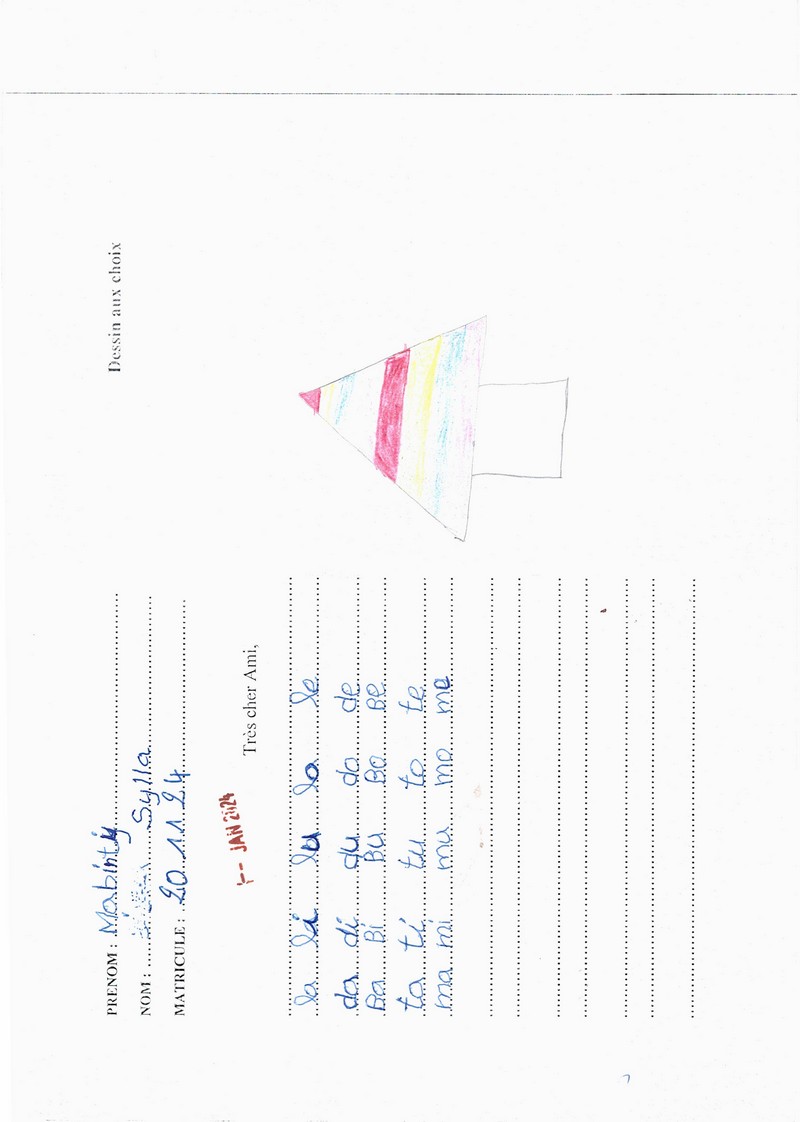 PRENOM : Mabinty
NOM : Sylla
MATRICULE : 20.11.24
JAN 2024
Très cher Ami,
la li lu lo le
da di du do de
Ba Bi Bu Bo Be
ta ti tu to te
ma mi mu mo me
Dessin aux choix